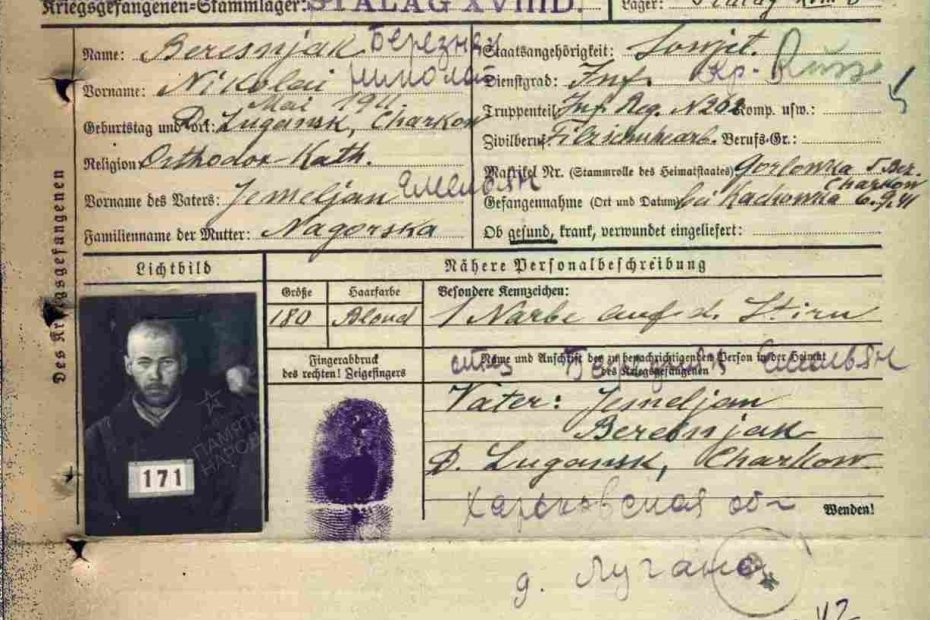 Kriegsgefangenen-Stammlager: STALAG XVIII D. Lager:
Name: Beresnjak Березняк
Vorname: Nikolai николай
Mai 1911,
Geburtstag und -ort: D. Lugansk, Charkow
Religion Orthodox Kath.
Vorname des Vaters: Jemeljan Емельян
Familienname der Mutter: Nagorska
Staatsangehörigkeit: Sowjet.
Dienstgrad: Inf.
Truppenteil: Inf. Reg. N 262 Komp. usw.:
Zivilberuf: Berufs-Gr.:
Matrikel Nr. (Stammrolle des Heimatstaates) Gorlowka
Charkow
Gefangennahme (Ort und Datum) bei Kachowka 6.9.41
Ob gesund, krank, verwundet eingeliefert:
Des Kriegsgefangenen
Lichtbild
171
ПАМЯТЬ
НАРОДА
Nähere Personalbeschreibung
Größe Haarfarbe Besondere Kennzeichen:
180 Blond 1 Narbe auf d. Stirn
Fingerabdruck
des rechten! Zeigefingers
Name und Anschrift der zu benachrichtigenden Person in der Heimat
des Kriegsgefangenen
Емельян
Vater: Jemeljan
Beresnjak
D. Lugansk, Charkow.
Харьковская об-
Wenden!
д. Луганс
42